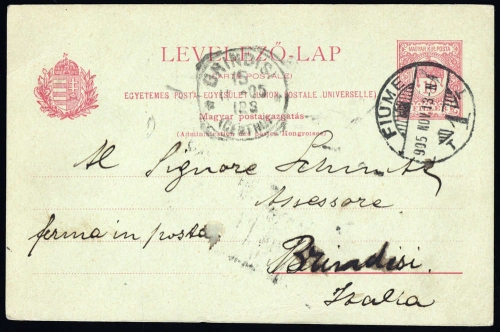 LEVELEZŐ-LAP
(CARTE POSTALE)
EGYETEMES POSTA-EGYESÜLET (UNION POSTALE UNIVERSELLE)
Magyar postaigazgatás
(Administration des Postes Hongroises)
BRINDISI
FIUME
905 NOV 13
Al Signore Schmitz
Assessore
ferma in posta
Brindisi.
Italia